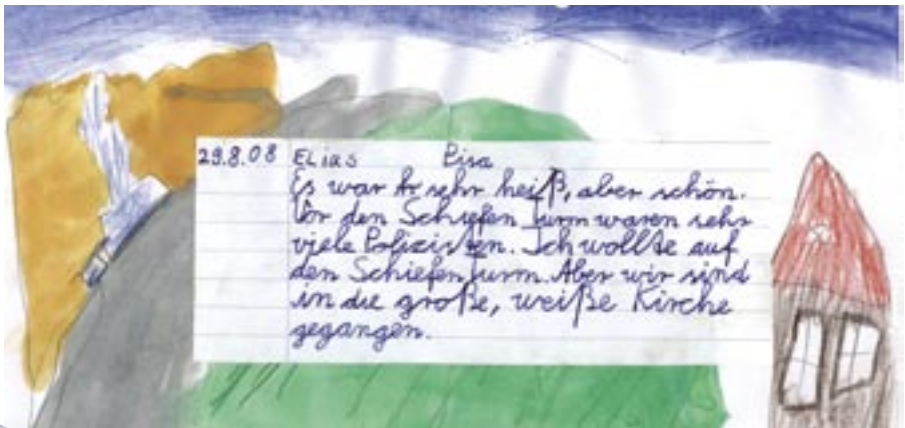 29.8.08 Elias Pisa
Es war sehr heiß, aber schön.
Vor den Schiefen Turm waren sehr
viele Polizisten. Ich wollte auf
den Schiefen Turm. Aber wir sind
in die große, weiße Kirche
gegangen.